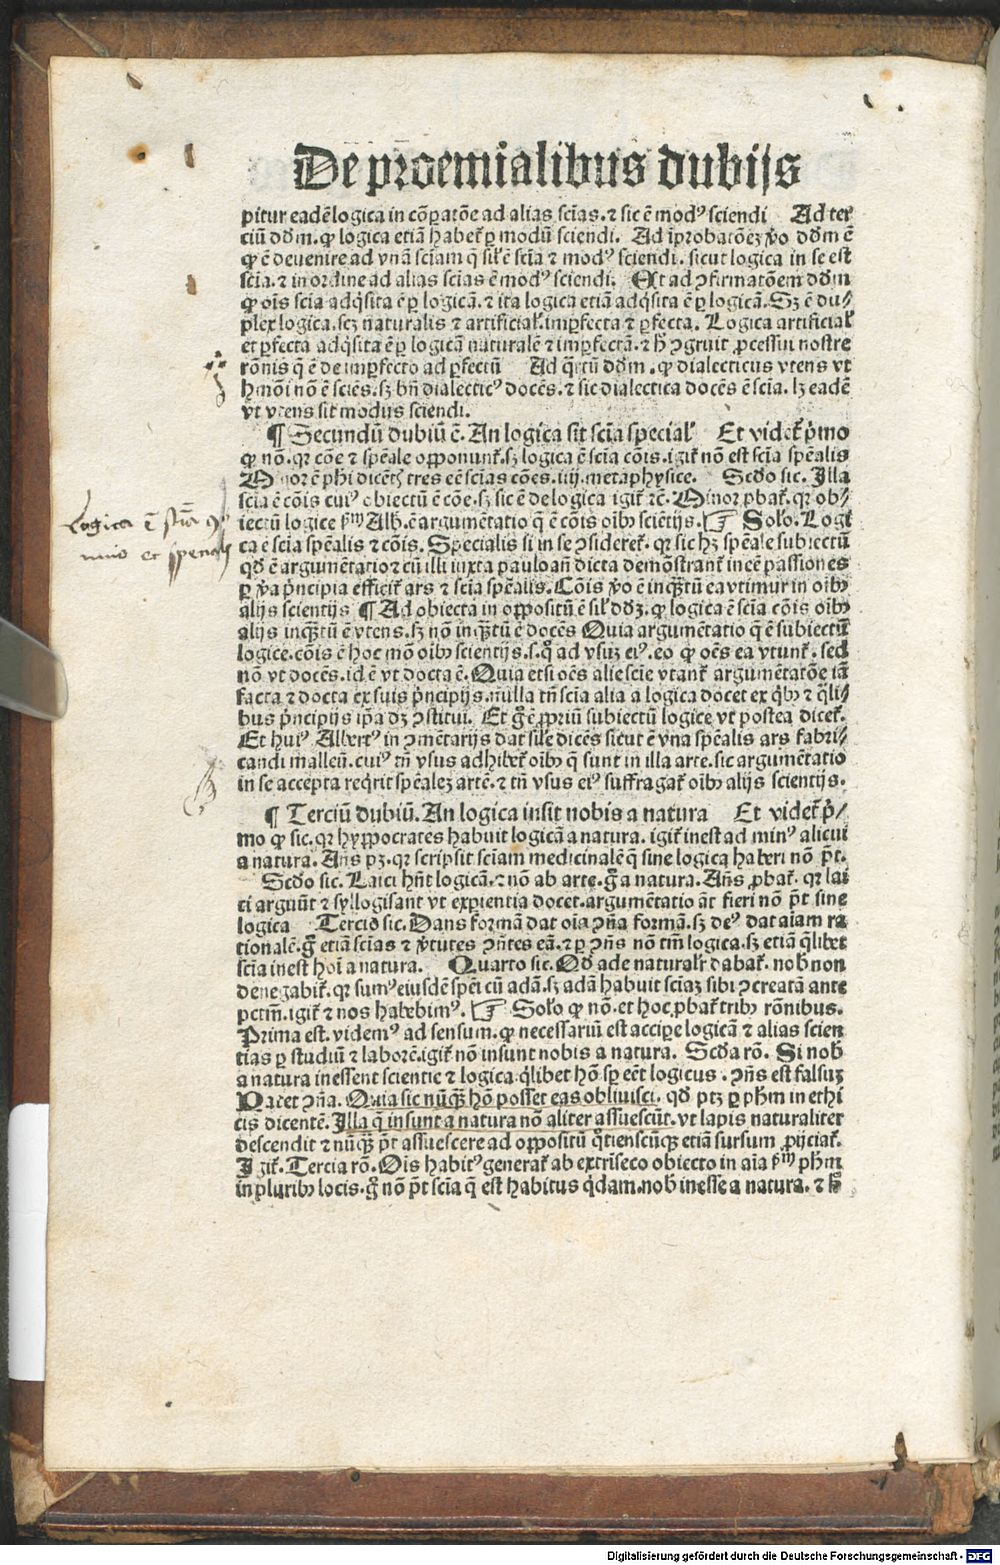 De prooemialibus dubijs
pitur eadē logica in cōparatōe ad alias scīas. ⁊ sic ē modꝰ sciendi Ad ter
ciū dd̄m. ꝙ logica etiā habet̄ ꝑ modū sciendi. Ad īprobatōeꝫ ꝟo dd̄m ē
ꝙ ē deuenire ad vnā scīam q̄ sil̄ ē scīa ⁊ modꝰ sciendi. sicut logica in se est
scīa. ⁊ in ordine ad alias scīas ē modꝰ sciendi. Et ad ꝯfirmatōem dd̄m
ꝙ oīs scīa adq̇sita ē ꝑ logicā. ⁊ ita logica etiā adq̇sita ē ꝑ logicā. Sꝫ ē du⸗
plex logica. scꝫ naturalis ⁊ artificial̄. imꝑfecta ⁊ ꝑfecta. Logica artificial̄
et ꝑfecta adq̇sita ē ꝑ logicā naturalē ⁊ imꝑfectā. ⁊ h̄ ꝯgruit ꝓcessui nostre
rōnis q̄ ē de imꝑfecto ad ꝑfectū Ad q̄rtū dd̄m. ꝙ dialecticus vtens vt
hmōi nō ē sciēs. sꝫ bn̄ dialecticꝰ docēs. ⁊ sic dialectica docēs ē scīa. lꝫ eadē
vt vtens sit modus sciendi.
¶ Secundū dubiū ē. An logica sit scīa special̄ Et videt̄ pͥmo
ꝙ nō. qꝛ cōe ⁊ spēale opponunt̄. sꝫ logica ē scīa cōis. igit̄ nō est scīa spēalis
Maior ē phī dicētꝭ tres eē scīas cōes. iiij. metaphysice. Scd̄o sic. Illa
scīa ē cōis cuiꝰ obiectū ē cōe. sꝫ sic ē de logica igit̄ ⁊c̄. Minor ꝓbat̄. qꝛ ob⸗
iectū logice ẜm Alb. ē argumētatio q̄ ē cōis oībꝫ sciētijs. ☞ Solo. Logi
ca ē scīa spēalis ⁊ cōis. Specialis si in se ꝯsideret̄. qꝛ sic hꝫ spēale subiectū
qd̄ ē argumētatio ⁊ cū illi iuxta paulo an̄ dicta demōstrant̄ ineē passiones
ꝑ ꝟa pͥncipia efficit̄ ars ⁊ scīa spēalis. Cōis ꝟo ē inq̄ꝫtū ea vtimur in oībꝫ
alijs scientijs ¶ Ad obiecta in oppositū ē sil̄ dd̄ꝫ. ꝙ logica ē scīa cōis oībꝫ
alijs inq̄ꝫtū ē vtens. sꝫ nō inq̄ꝫtū ē docēs Quia argumētatio q̄ ē subiectū
logice. cōis ē hoc mō oībꝫ scientijs. s. qͦ ad vsuꝫ eiꝰ. eo ꝙ oēs ea vtunt̄. sed
nō vt docēs. id ē vt docta ē. Quia etsi oēs alie scīe vtant̄ argumētatōe iā
facta ⁊ docta ex suis pͥncipijs. nulla tn̄ scīa alia a logica docet ex q̇bꝫ ⁊ q̄li⸗
bus pͥncipijs ip̄a dꝫ ꝯstitui. Et g̊ ē ꝓpriū subiectū logice vt postea dicet̄.
Et huiꝰ Albertꝰ in ꝯmētarijs dat sil̄e dicēs sicut ē vna spēalis ars fabri⸗
candi malleū. cuiꝰ tn̄ vsus adhibet̄ oībꝫ q̄ sunt in illa arte. sic argumētatio
in se accepta reqͥrit spēaleꝫ artē. ⁊ tn̄ vsus eiꝰ suffragat̄ oībꝫ alijs scientijs.
¶ Terciū dubiū. An logica insit nobis a natura Et videt̄ pͥ⸗
mo ꝙ sic. qꝛ hyppocrates habuit logicā a natura. igit̄ inest ad minꝰ alicui
a natura. Añs pꝫ. qꝛ scripsit scīam medicinalē q̄ sine logica haberi nō pt̄.
Scd̄o sic. Laici hn̄t logicā. ⁊ nō ab arte. g̊ a natura. Añs ꝓbat̄. qꝛ lai
ci arguūt ⁊ syllogisant vt experientia docet. argumētatio āt fieri nō pt̄ sine
logica Tercio sic. Dans formā dat oīa ꝯn̄a formā. sꝫ deꝰ dat aīam ra
tionalē. g̊ etiā scīas ⁊ ꝟtutes ꝯn̄tes eā. ⁊ ꝑ ꝯn̄s nō tm̄ logica. sꝫ etiā q̄libet
scīa inest hoī a natura. Quarto sic. Qd̄ ade naturalr̄ dabat̄. nob̄ non
denegabit̄. qꝛ sumꝰ eiusdē spēi cū adā. sꝫ adā habuit sciaꝫ sibi ꝯcreatā ante
pctm̄. igit̄ ⁊ nos habebimꝰ. ☞ Solo ꝙ nō. et hoc ꝓbat̄ tribꝫ rōnibus.
Prima est. videmꝰ ad sensum. ꝙ necessariū est accipe logicā ⁊ alias scien
tias ꝑ studiū ⁊ laborē. igit̄ nō insunt nobis a natura. Scd̄a rō. Si nob̄
a natura inessent scientie ⁊ logica q̇libet hō sp̄ eēt logicus. ꝯn̄s est falsuꝫ
Patet ꝯn̄a. Quia sic nūq̄ꝫ hō posset eas obliuisci. qd̄ ptꝫ ꝑ phm̄ in ethi
cis dicentē. Illa q̄ insunt a natura nō aliter assuescūt. vt lapis naturaliter
descendit ⁊ nūq̄ꝫ pt̄ assuescere ad oppositū qͦtienscūqꝫ etiā sursum ꝓijciat̄.
Igit̄. Tercia rō. Ois habitꝰ generat̄ ab extrīseco obiecto in aīa ẜm phm̄
in pluribꝫ locis. g̊ nō pt̄ scīa q̄ est habitus q̇dam. nob̄ inesse a natura. ⁊ h̄
Logica ē scīa
et specialis
Digitalisierung gefördert durch die Deutsche Forschungsgemeinschaft - DFG